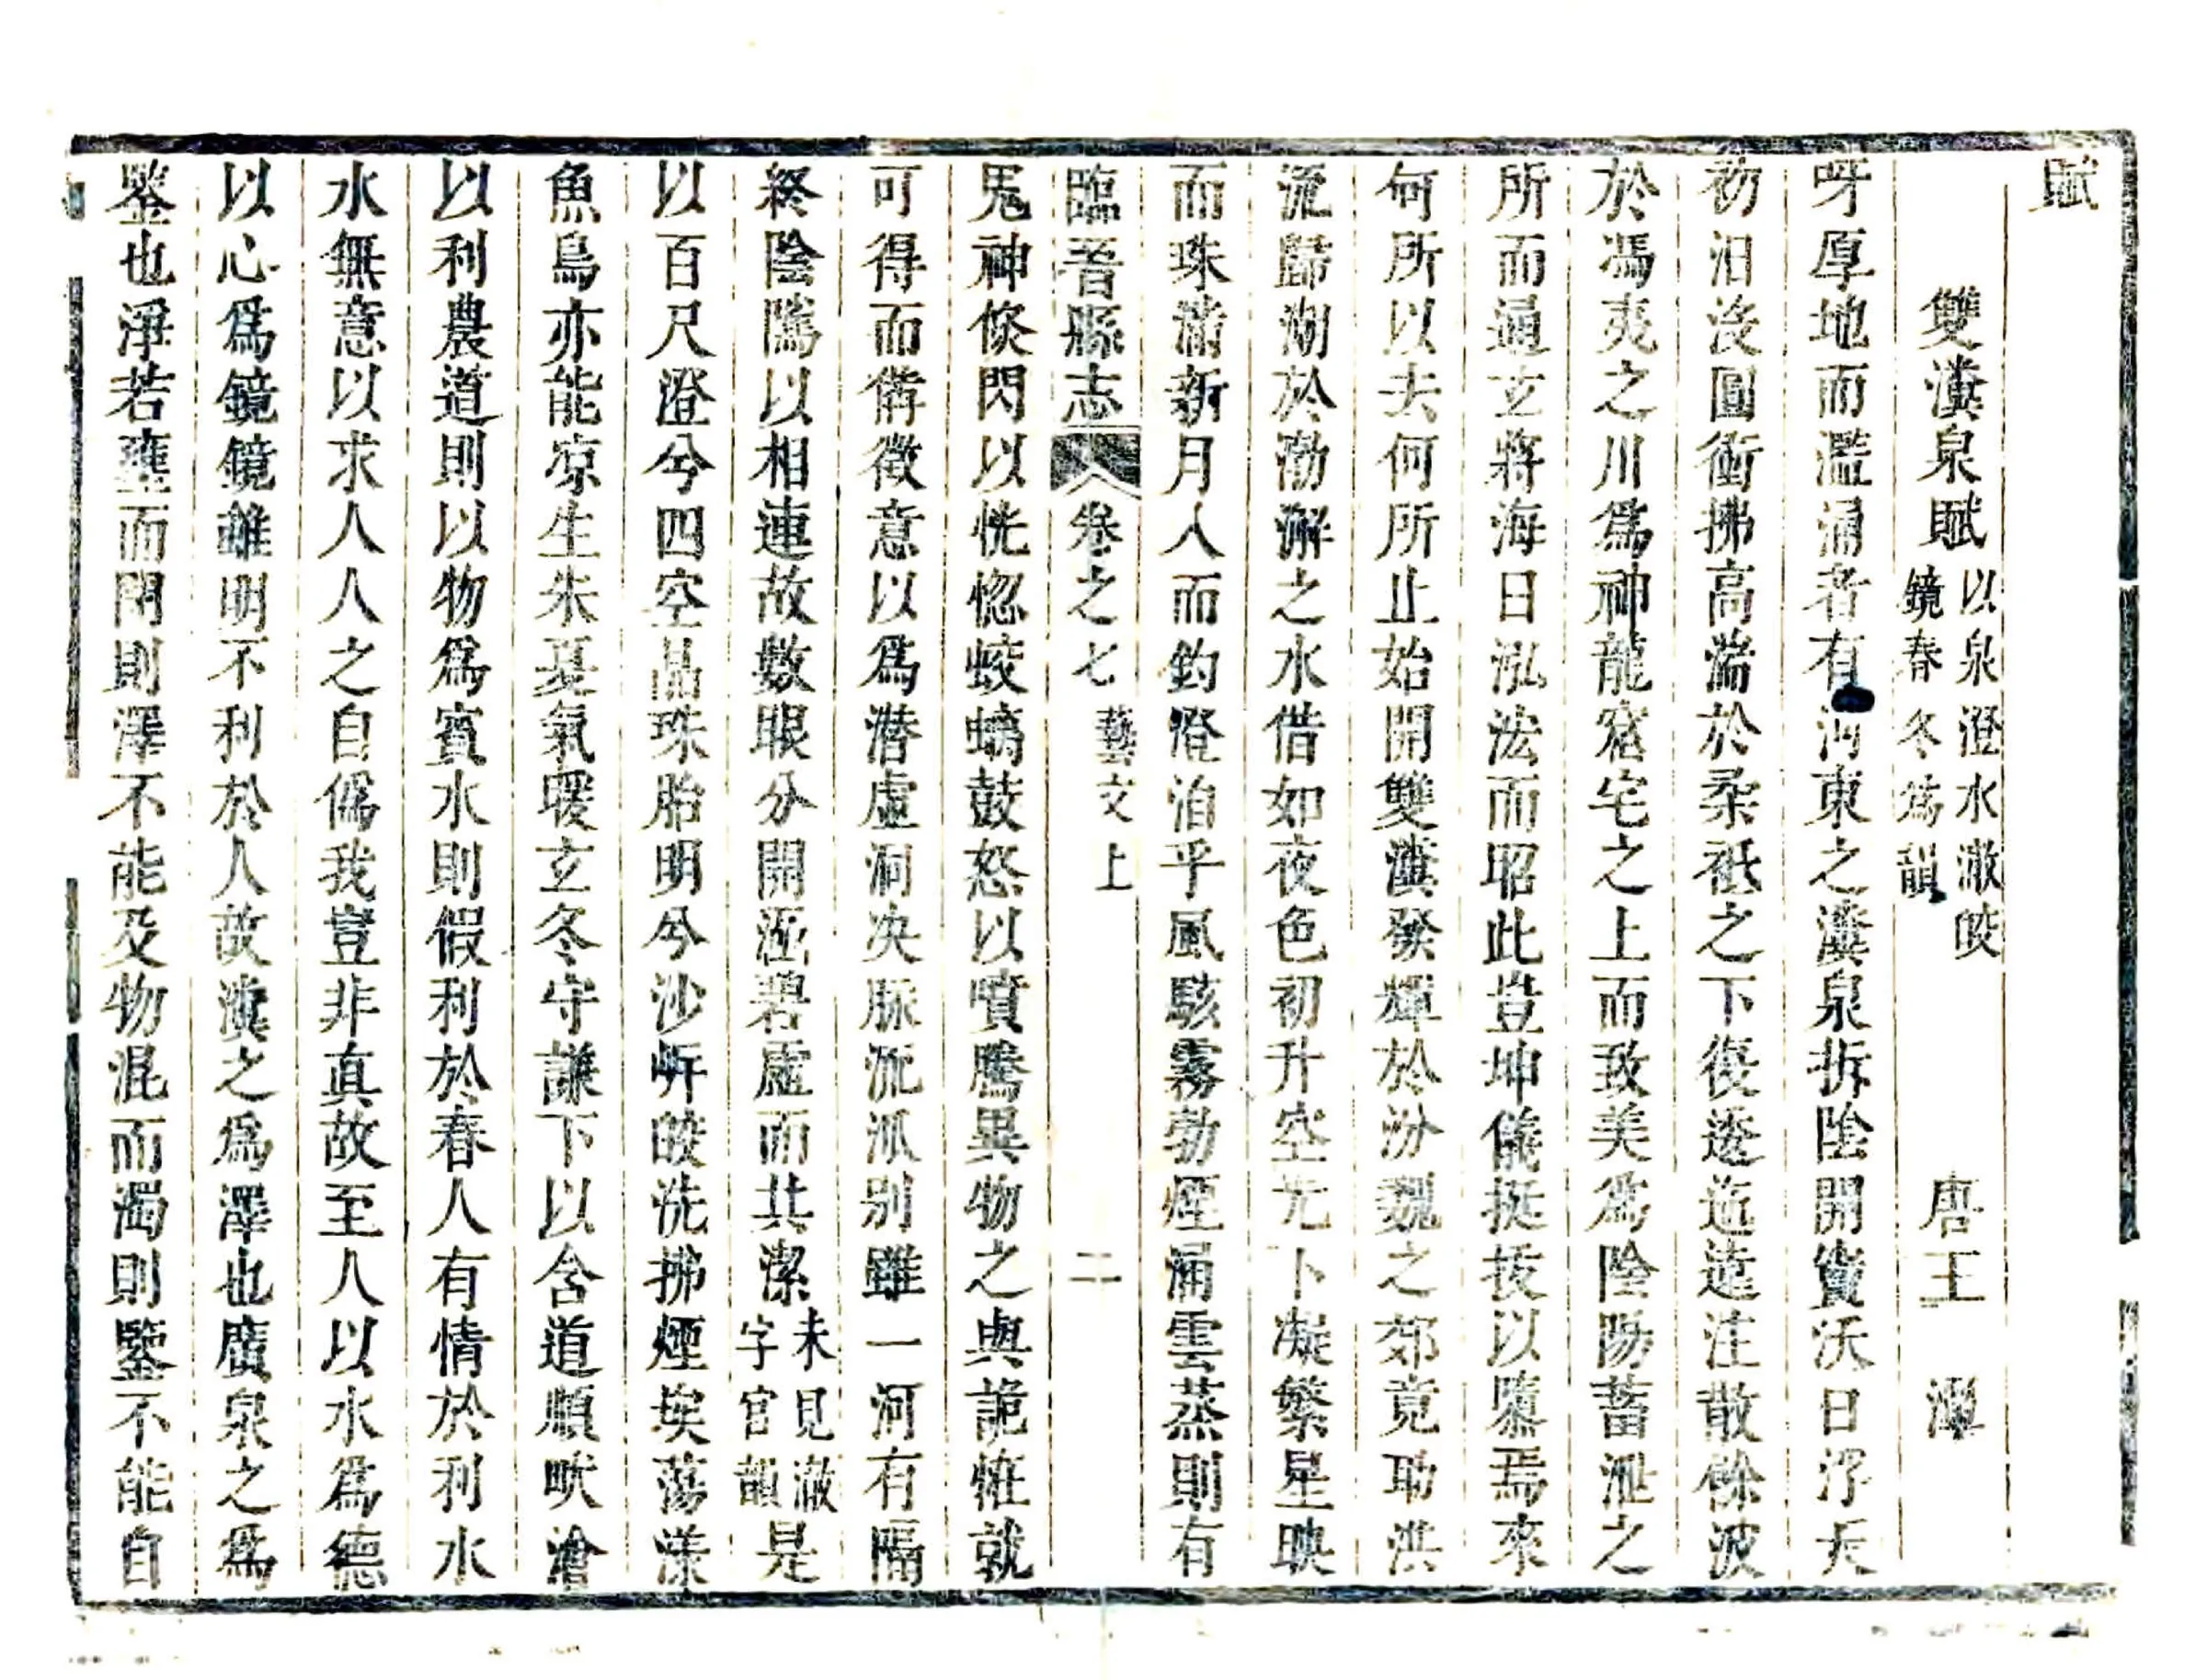 賦
雙瀵泉賦 以泉澄水澈皎鏡春冬爲韻 唐王 潭
呀厚地而濫涌者有河東之瀵泉拆陰開竇沃日浮天
汩沒圓衝拂高湍於柔祇之下復邐迤遠注散餘波
於馮夷之川爲神龍窟宅之上而致美爲陰陽蓄泄之
所而通玄將海日泓法而昭此豈坤儀挺拔以隳焉來
何所以去何所止始開雙瀵發輝於汾魏之郊竟助洪
流歸湖於渤澥之水借如夜色初升空无卜凝繁星映
而珠滿新月人而鈞澄洎乎風駭霧勃煙涌雲蒸則有
臨晉縣志 卷之七 藝文上 二
鬼神倐閃以恍惚蛟螭鼓怒以噴騰異物之與詭恠就
可得而俻徵意以爲潛虛洞决脉流派别雖一河有隔
終陰隲以相連故數眼分開涵碧虛而共潔 未見澈字官韻 是
以百尺澄兮四空晶珠胎明兮沙岍皎洗拂煙埃蕩漾
魚鳥亦能凉生朱夏氣暖玄冬守謙下以含道順畎澮
以利農道則以物爲賓水則假利於春人有情於利水
水無意以求人人之自僞我豈非真故至人以水爲德
以心爲鏡鏡雖明不利於人故瀵之爲澤也廣泉之爲
鑒也淨若壅而閉則澤不能及物混而濁則鑒不能自